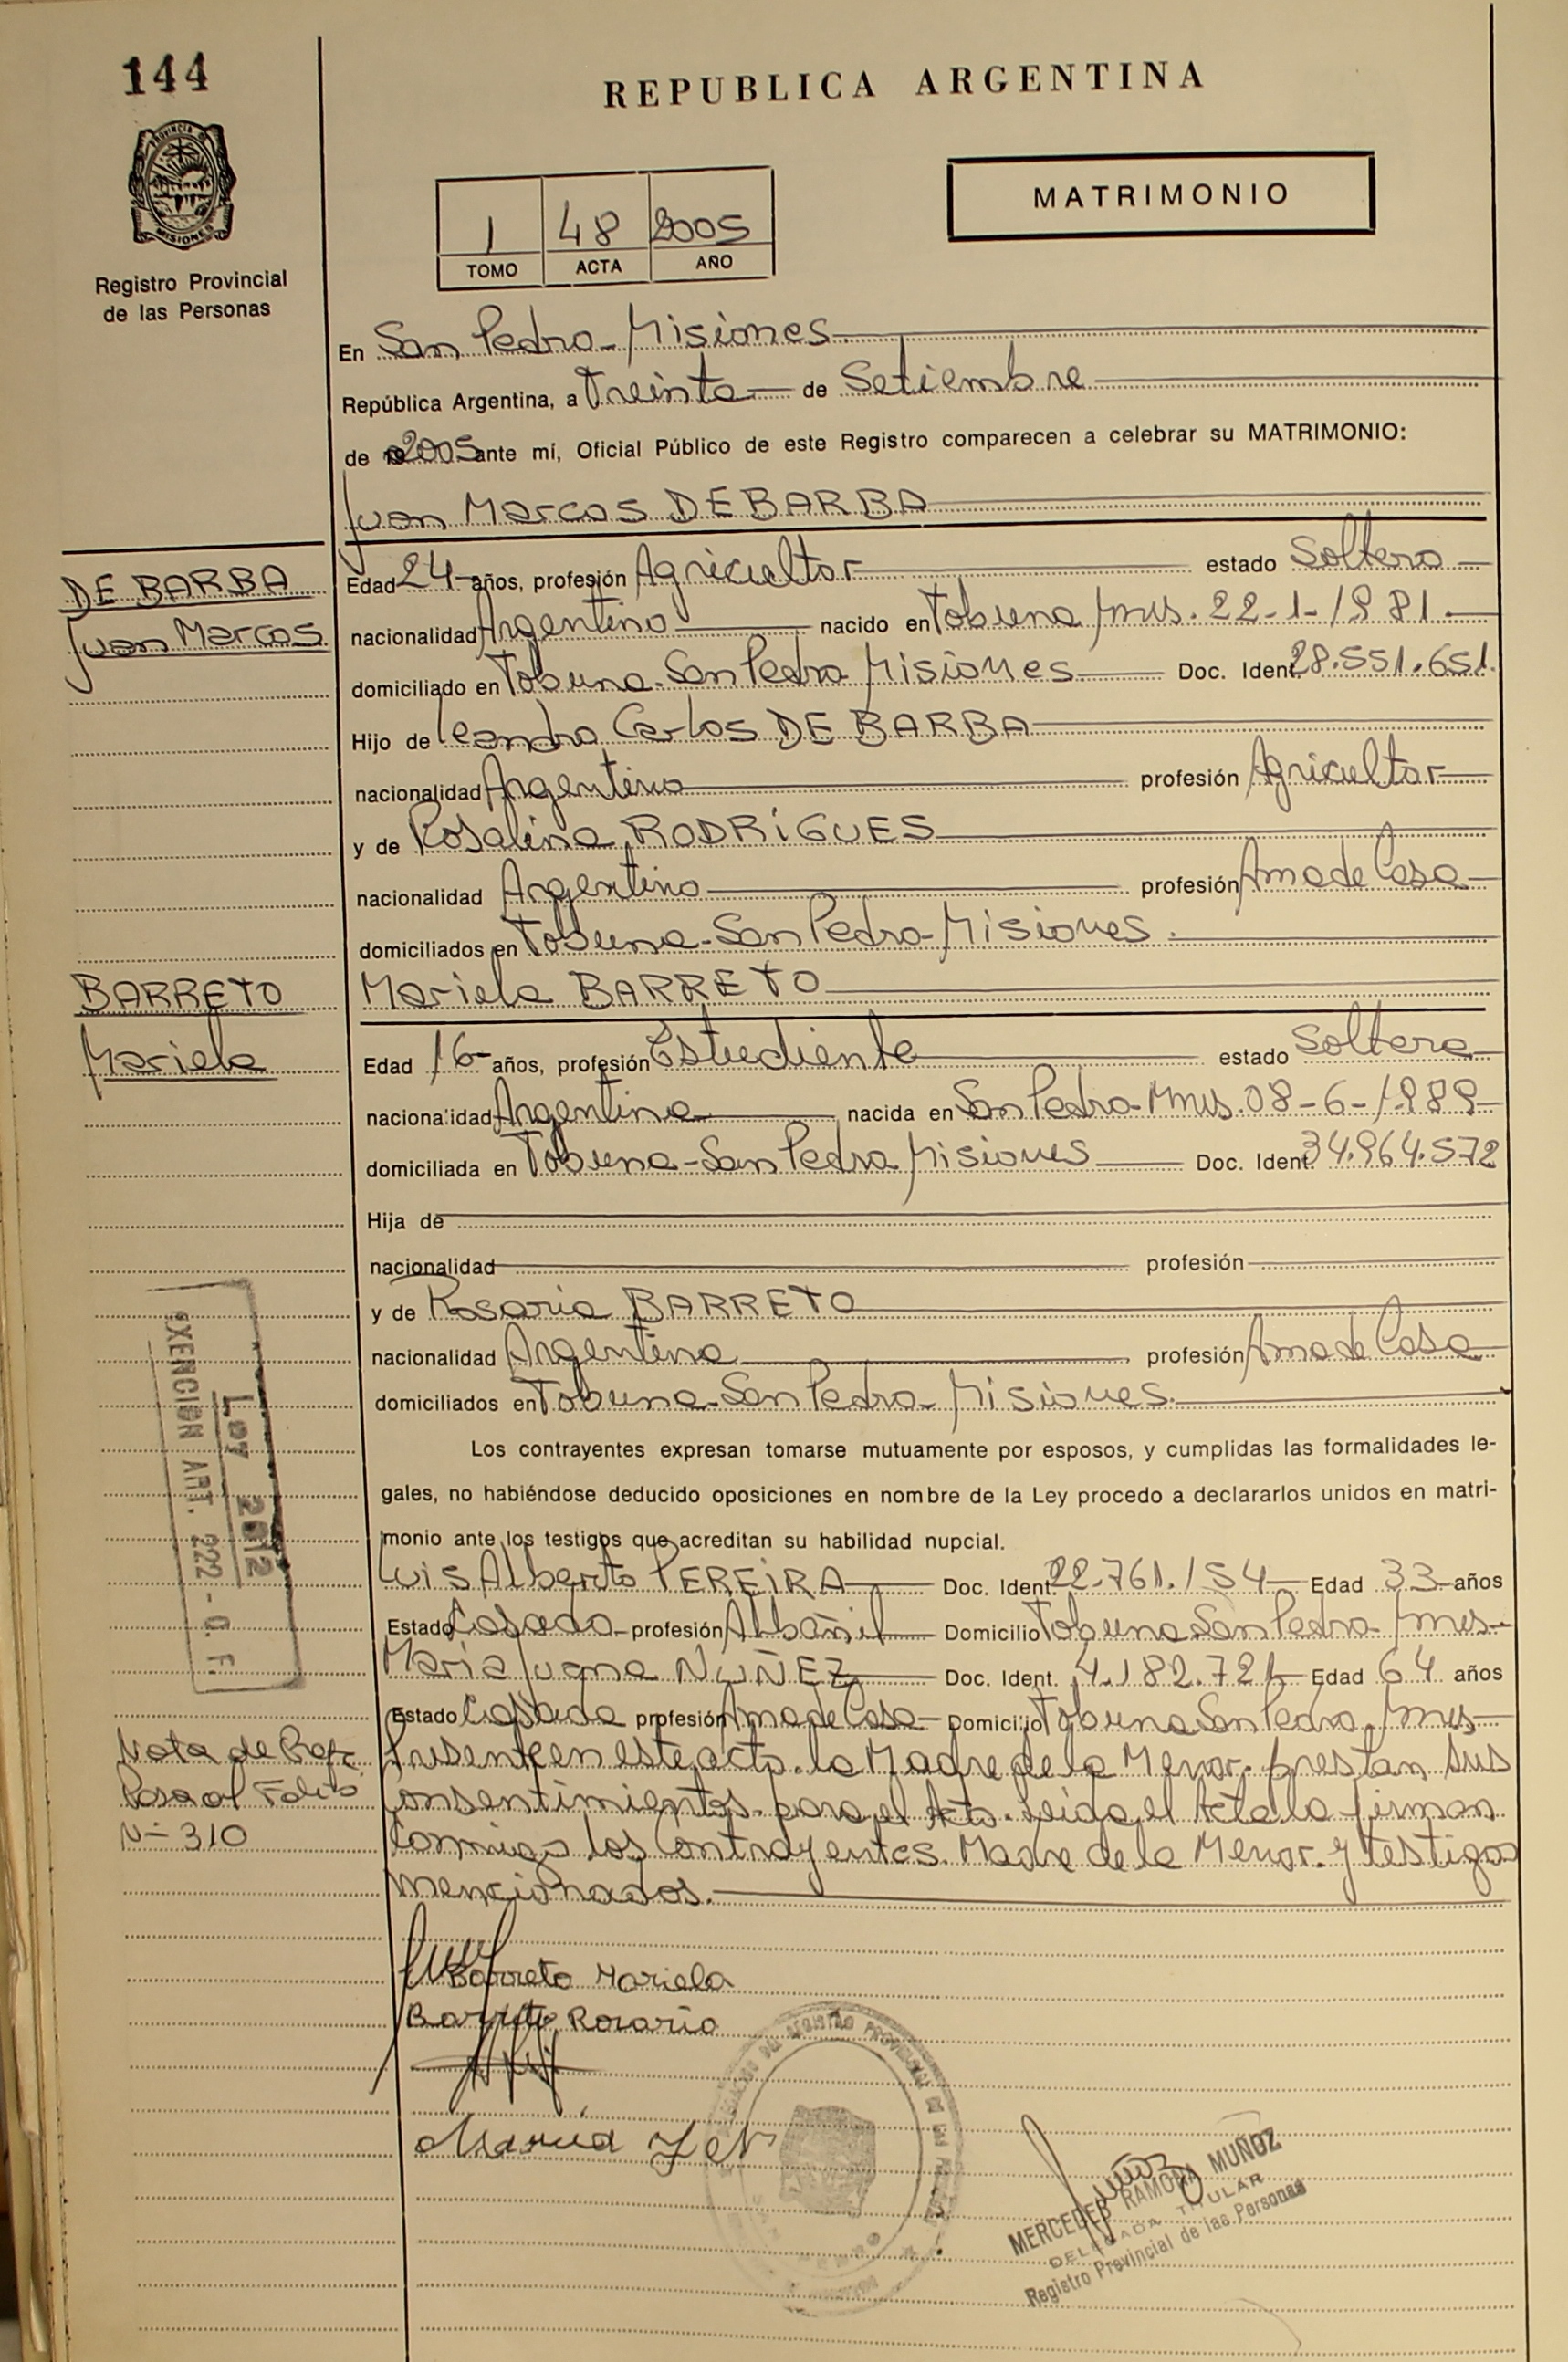 144
REPUBLICA ARGENTINA
PROVINCIA DE
MISIONES
MATRIMONIO
1 48 2005
TOMO ACTA AÑO
Registro Provincial
de las Personas
En San Pedro - Misiones
República Argentina, a Treinta de Setiembre
de 2005 ante mí, Oficial Público de este Registro comparecen a celebrar su MATRIMONIO:
Juan Marcos DE BARBA
DE BARBA
Juan Marcos
Edad 24 años, profesión Agricultor estado Soltero
nacionalidad Argentino nacido en Tobuna Mnes. 22-1-1981
domiciliado en Tobuna - San Pedro Misiones Doc. Ident. 28.551.651.
Hijo de Leandro Carlos DE BARBA
nacionalidad Argentino profesión Agricultor
y de Rosalina RODRIGUES
nacionalidad Argentino profesión Ama de Casa
domiciliados en Tobuna - San Pedro - Misiones.
BARRETO
Mariela
Mariela BARRETO
Edad 16 años, profesión Estudiente estado Soltera
nacionalidad Argentina nacida en San Pedro - Mnes. 08-6-1989
domiciliada en Tobuna - San Pedro Misiones Doc. Ident. 34.964.572
Hija de
nacionalidad profesión
y de Rosario BARRETO
nacionalidad Argentina profesión Ama de Casa
domiciliados en Tobuna - San Pedro - Misiones.
Los contrayentes expresan tomarse mutuamente por esposos, y cumplidas las formalidades le-
gales, no habiéndose deducido oposiciones en nombre de la Ley procedo a declararlos unidos en matri-
monio ante los testigos que acreditan su habilidad nupcial.
EXENCION ART. 222 - O. F.
Ley 2612
Luis Alberto PEREIRA Doc. Ident. 22.761.154 Edad 33 años
Estado Casado profesión Albañil Domicilio Tobuna San Pedro Mnes
Maria Juana NUÑEZ Doc. Ident. 4.182.721 Edad 64 años
Estado Casada profesión Ama de Casa Domicilio Tobuna San Pedro Mnes
Presente en este acto. la Madre de la Menor. prestan sus
Consentimientos. para el Acto. Leida el Acta la firman
Conmigo los Contrayentes. Madre de la Menor. y testigos
mencionados.
Nota de Ref.
Pasa al Folio
Nº 310
Barreto Mariela
Barreto Rosario
Maria
Muñoz
MERCEDES RAMONA MUÑOZ
DELEGADA TITULAR
Registro Provincial de las Personas